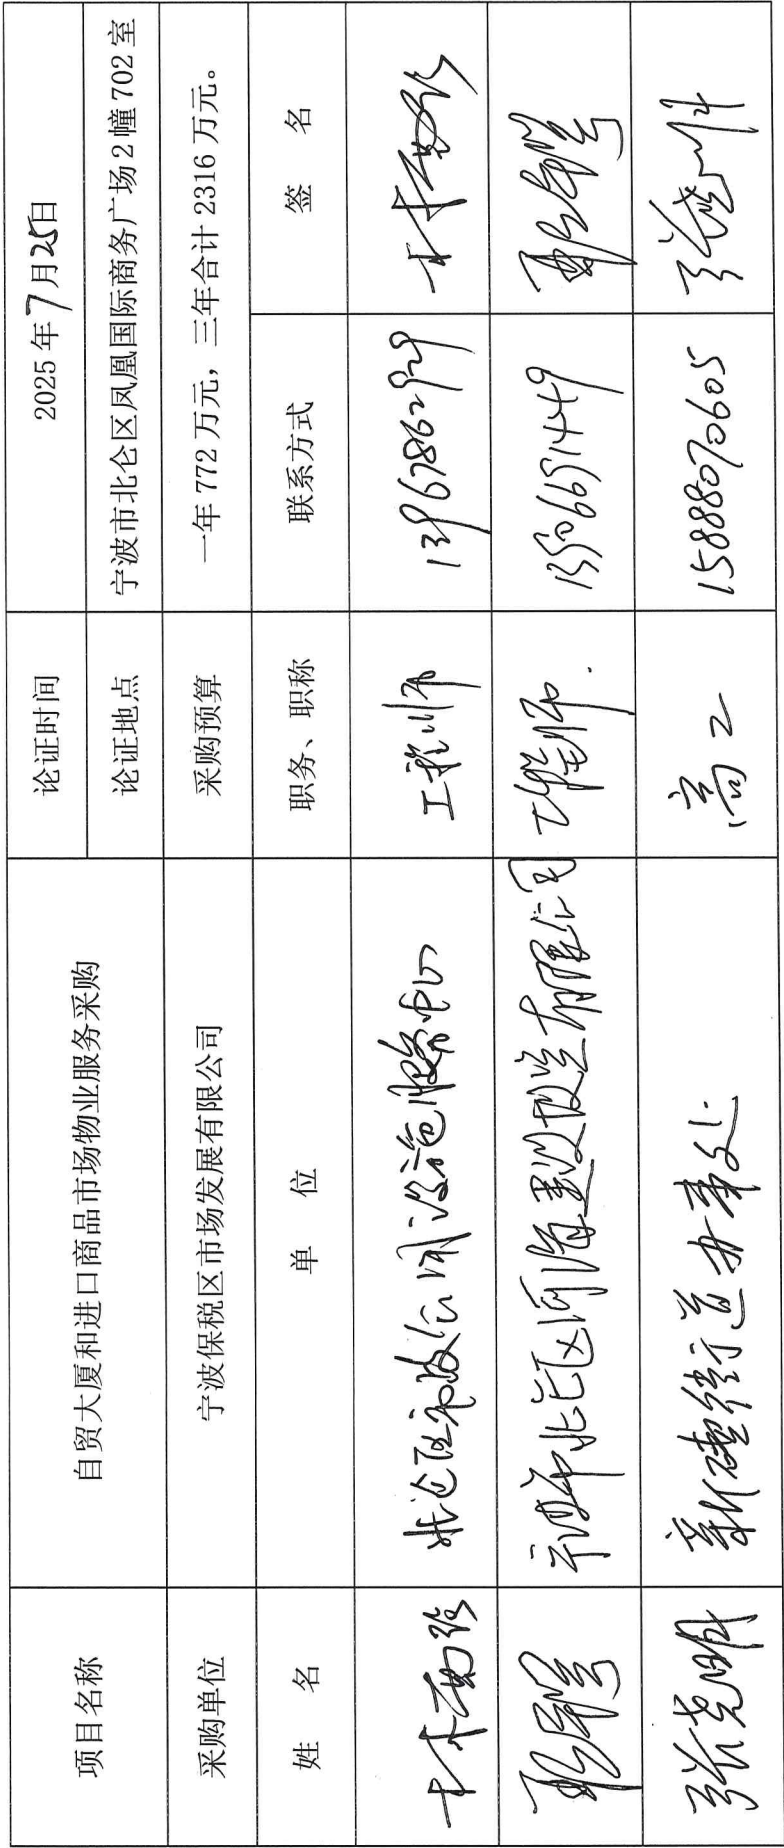 项目名称 自贸大厦和进口商品市场物业服务采购 论证时间 2025年7月25日
论证地点 宁波市北仑区凤凰国际商务广场2幢702室
采购单位 宁波保税区市场发展有限公司 采购预算 一年772万元，三年合计2316万元。
姓 名 单 位 职务、职称 联系方式 签 名
北仑区市政公用设施服务中心 工程师 13967862929
宁波市北仑区河海建设投资有限公司 工程师. 13506691449
新碶街道办事处 高工 15888070605